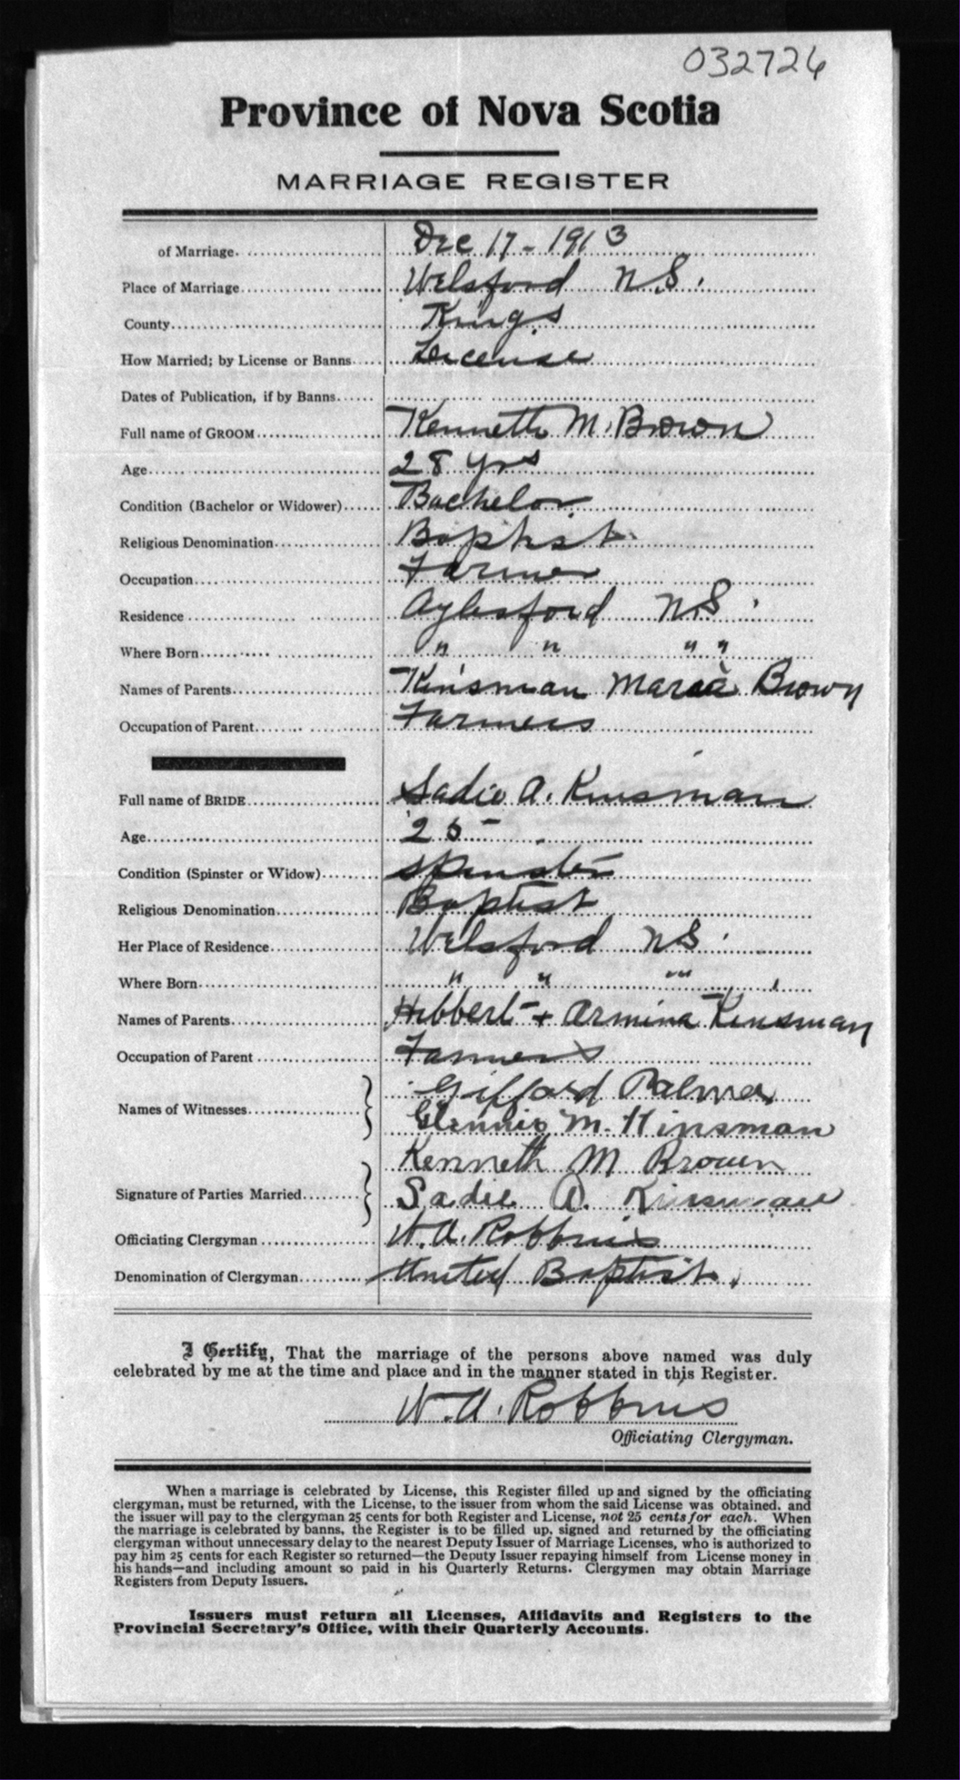 032726
Province of Nova Scotia
MARRIAGE REGISTER
of Marriage. Dec 17 - 1913
Place of Marriage Welsford N.S.
County Kings
How Married; by License or Banns License
Dates of Publication, if by Banns
Full name of GROOM Kenneth M. Brown
Age 28 yrs
Condition (Bachelor or Widower) Bachelor
Religious Denomination Baptist
Occupation Farmer
Residence Aylesford N.S.
Where Born " " " "
Names of Parents Kinsman Maria Brown
Occupation of Parent Farmers
Full name of BRIDE Sadie A. Kinsman
Age 25
Condition (Spinster or Widow) Spinster
Religious Denomination Baptist
Her Place of Residence Welsford NS
Where Born " " " "
Names of Parents Hibbert + Armina Kinsman
Occupation of Parent Farmers
Names of Witnesses Gifford Palmer
M. Kinsman
Kenneth M Brown
Signature of Parties Married Sadie A. Kinsman
Officiating Clergyman W. A. Robbins
Denomination of Clergyman United Baptist.
I Certify, That the marriage of the persons above named was duly
celebrated by me at the time and place and in the manner stated in this Register.
W. A. Robbins
Officiating Clergyman.
When a marriage is celebrated by License, this Register filled up and signed by the officiating
clergyman, must be returned, with the License, to the issuer from whom the said License was obtained, and
the issuer will pay to the clergyman 25 cents for both Register and License, not 25 cents for each. When
the marriage is celebrated by banns, the Register is to be filled up, signed and returned by the officiating
clergyman without unnecessary delay to the nearest Deputy Issuer of Marriage Licenses, who is authorized to
pay him 25 cents for each Register so returned—the Deputy Issuer repaying himself from License money in
his hands—and including amount so paid in his Quarterly Returns. Clergymen may obtain Marriage
Registers from Deputy Issuers.
Issuers must return all Licenses, Affidavits and Registers to the
Provincial Secretary's Office, with their Quarterly Accounts.